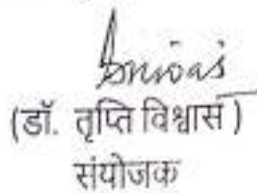 (डॉ. तृप्ति विश्वास)
संयोजक